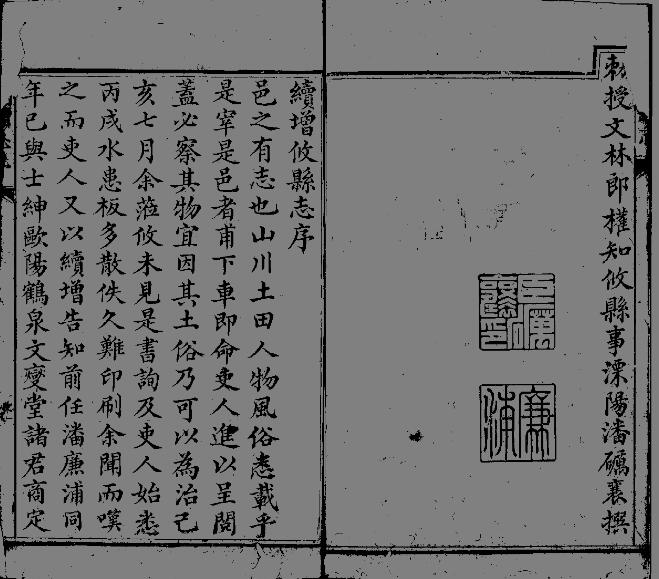 勅授文林郎權知攸縣事溧陽潘礪襄撰
續增攸縣志序
邑之有志也山川土田人物風俗悉載乎
是宰是邑者甫下車即命吏人進以呈閱
蓋必察其物宜因其土俗乃可以為治己
亥七月余蒞攸未見是書詢及吏人始悉
丙戌水患板多散佚久難印刷余聞而嘆
之而吏人又以續增告知前任潘廉浦同
年已與士紳歐陽鶴泉文燮堂諸君商定
廉浦